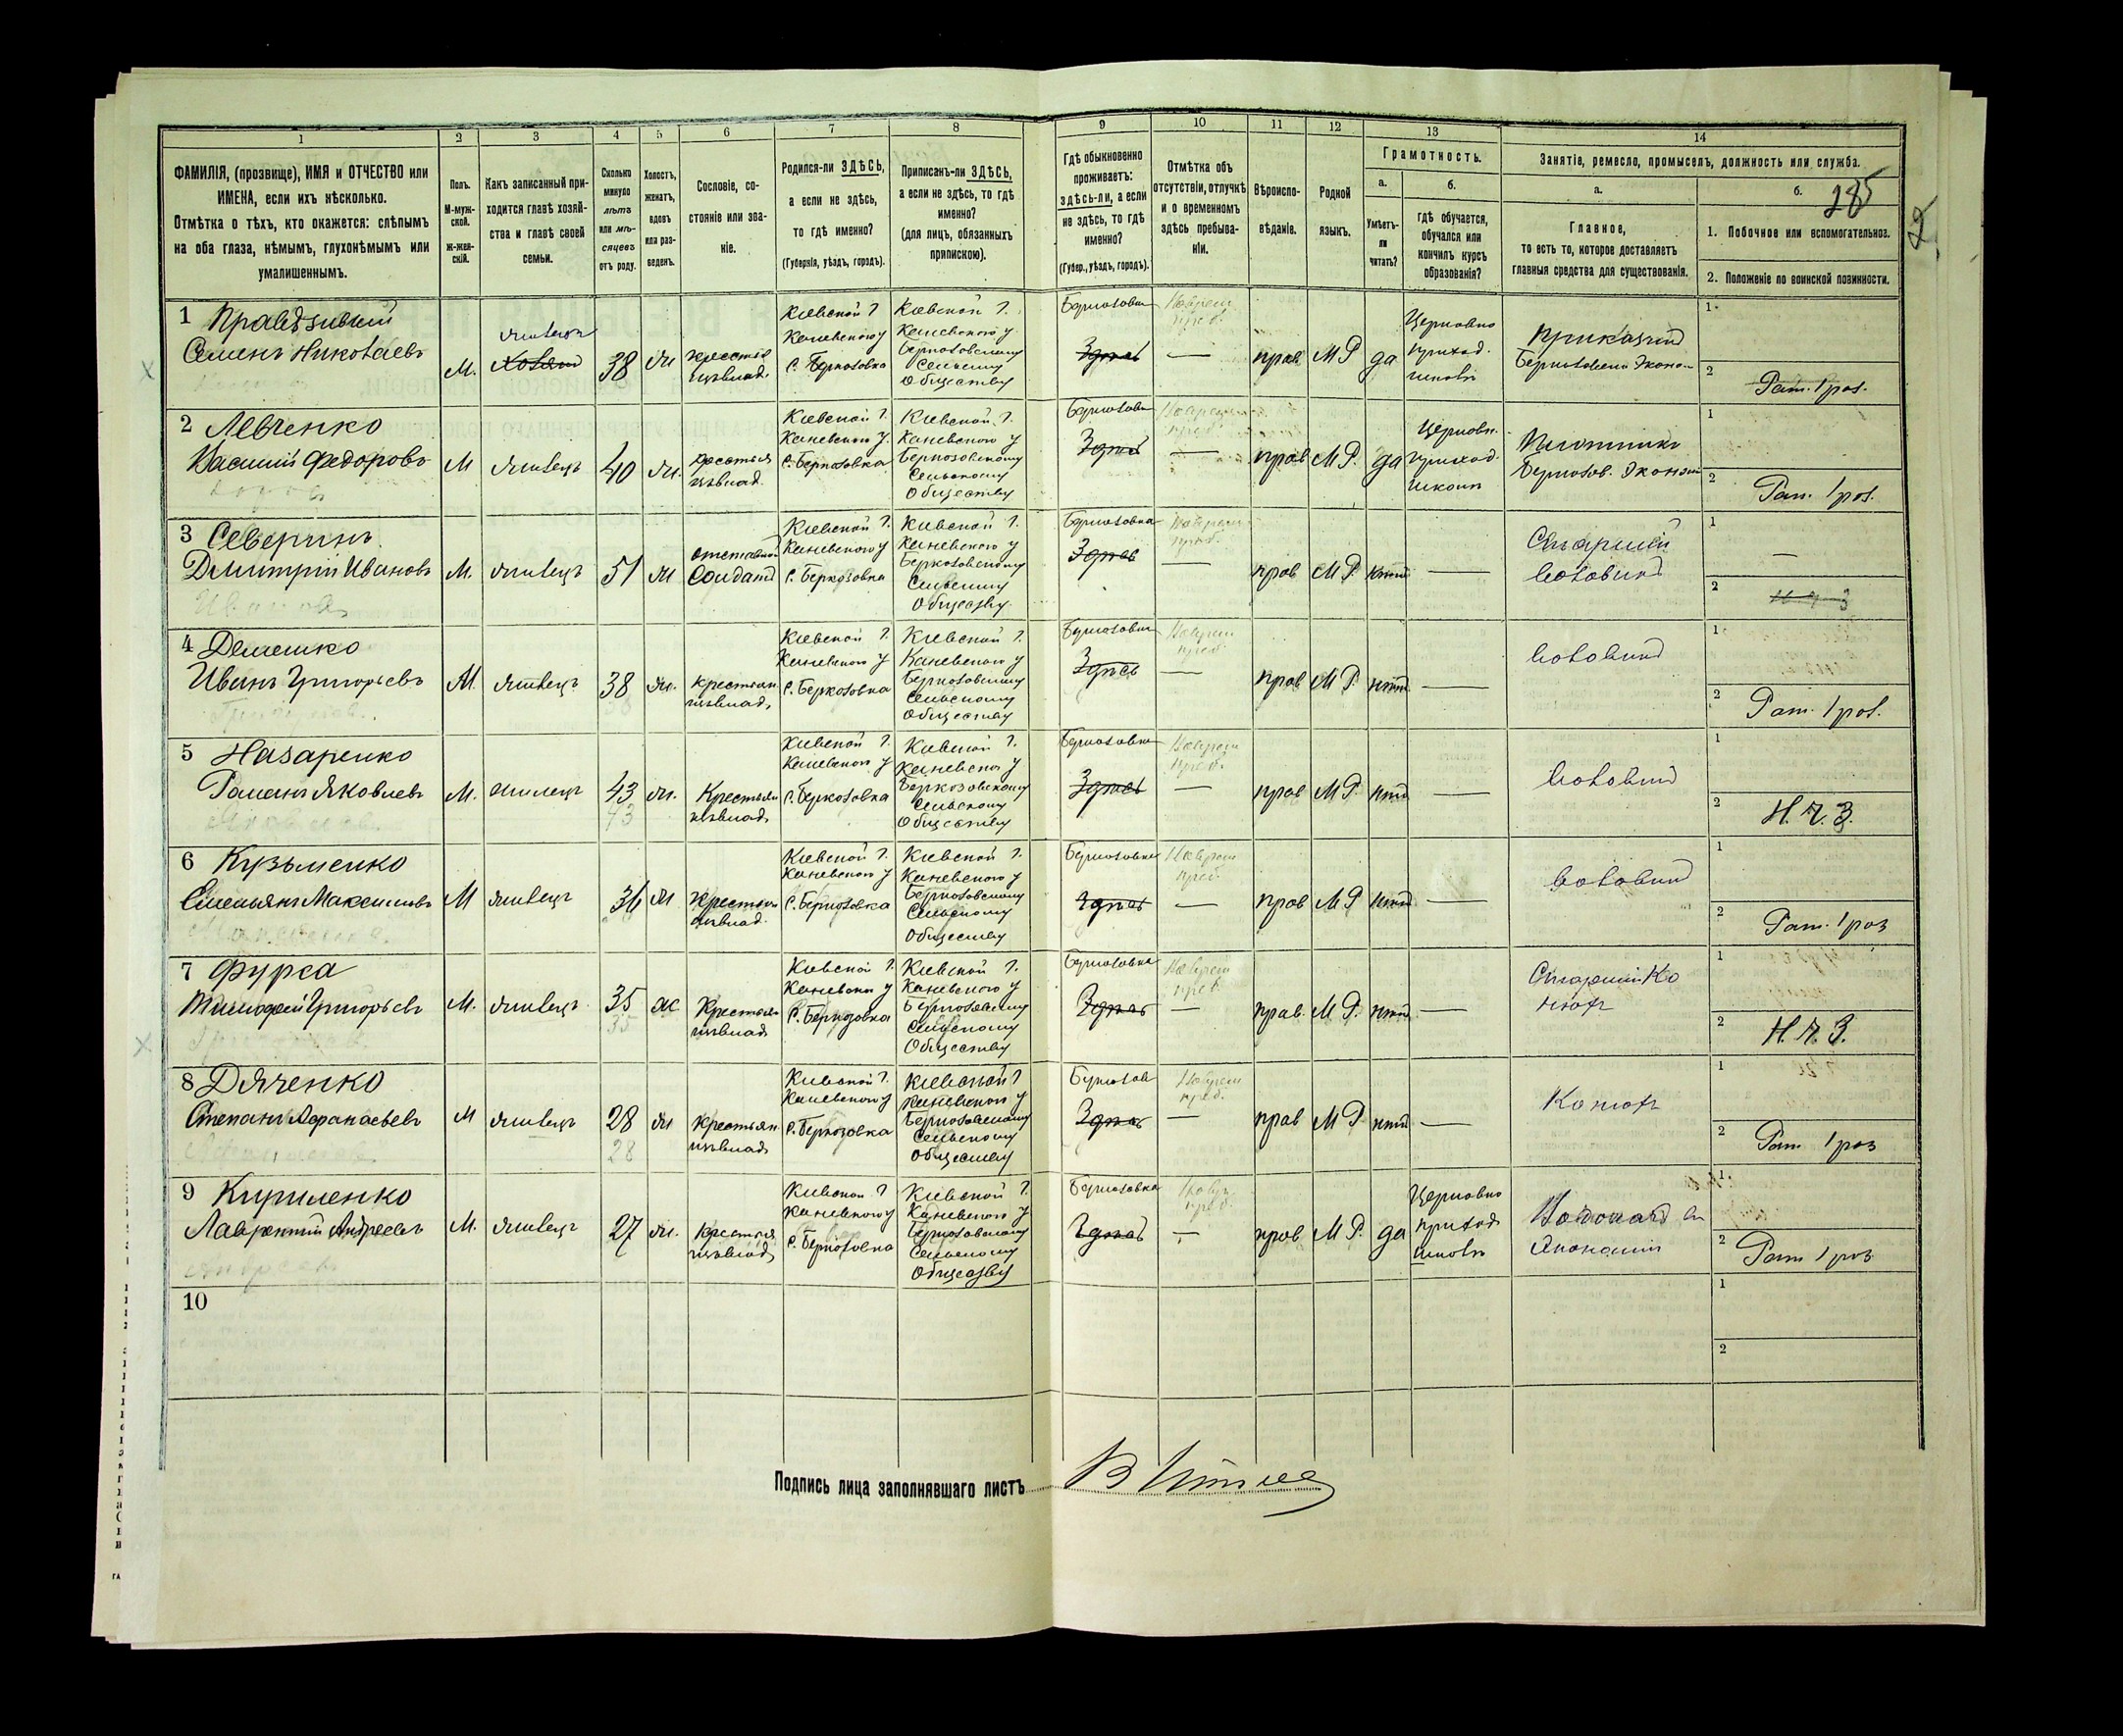 1 2 3 4 5 6 7 8 9 10 11 12 13 14
ФАМИЛІЯ, (прозвище), ИМЯ и ОТЧЕСТВО или
ИМЕНА, если ихъ нѣсколько.
Отмѣтка о тѣхъ, кто окажется: слѣпымъ
на оба глаза, нѣмымъ, глухонѣмымъ или
умалишеннымъ.
Полъ.
М-муж-
ской.
ж-жен-
скій.
Какъ записанный при-
ходится главѣ хозяй-
ства и главѣ своей
семьи.
Сколько
минуло
лѣтъ
или мѣ-
сяцевъ
отъ роду.
Холостъ,
женатъ,
вдовъ
или раз-
веденъ.
Сословіе, со-
стояніе или зва-
ніе.
Родился-ли ЗДѢСЬ,
а если не здѣсь,
то гдѣ именно?
(Губернія, уѣздъ, городъ).
Приписанъ-ли ЗДѢСЬ,
а если не здѣсь, то гдѣ
именно?
(для лицъ, обязанныхъ
припискою).
Гдѣ обыкновенно
проживаетъ:
ЗДѢСЬ-ли, а если
не здѣсь, то гдѣ
именно?
(Губер., уѣздъ, городъ).
Отмѣтка объ
отсутствіи, отлучкѣ
и о временномъ
здѣсь пребыва-
ніи.
Вѣроиспо-
вѣданіе.
Родной
языкъ.
Грамотность.
а.
Умѣетъ-
ли
читать?
б.
гдѣ обучается,
обучался или
кончилъ курсъ
образованія?
Занятіе, ремесло, промыселъ, должность или служба.
а.
Главное,
то есть то, которое доставляетъ
главныя средства для существованія.
б.
285
1. Побочное или вспомогательное.
2. Положеніе по воинской повинности.
1 Правдзивый
Семенъ Николаевъ
М.
жилецъ
Хозяин
38
жн
крестья
изъ влад.
Киевской Г.
Каневского у
с. Беркозовка
Киевской Г.
Каневского у
Беркозовскому
Сельскому
Обществу
Здесь
—
прав
М Р
да
Церковно
приход.
школа
Приказчик
1
2
Рат. 1 раз.
2 Левченко
Василий Федоровъ
М
жилецъ
40
жн.
крестья
изъ влад.
Киевской Г.
Каневского у.
с. Беркозовка
Киевской Г.
Каневского у
Беркозовскому
Сельскому
Обществу
Здесь
—
прав
М Р.
да
Церковн.
приход.
Плотник
1
2
Рат. 1 раз.
3 Северинъ
Дмитрий Ивановъ
М.
жилецъ
51
жн
отставной
Солдат
Киевской Г.
Каневского у
с. Беркозовка
Киевской Г.
Каневского у
Беркозовскому
Сельскому
Обществу
Беркозовка
Здесь
—
прав
М Р.
нет
—
Старший
воловик
1
—
2
4 Демешко
Иванъ Григорьевъ
М.
жилецъ
38
жн.
крестьян
изъ влад.
Киевской Г.
Каневского у
с. Беркозовка
Киевской Г.
Каневского у
Беркозовскому
Сельскому
Обществу
Здесь
—
прав
М Р.
нет
—
воловик
1
2
Рат. 1 раз.
5 Назаренко
Романъ Яковлевъ
М.
жилецъ
43
жн.
Крестьян
изъ влад.
Киевской Г.
Каневского у
с. Беркозовка
Киевской Г.
Каневского у
Беркозовскому
Сельскому
Обществу
Здесь
—
прав
М Р.
нет
—
воловик
1
2
Н. Ч. З.
6 Кузьменко
Емельянъ Максимовъ
М
жилецъ
36
жн
Крестьян
изъ влад.
Киевской Г.
Каневского у
с. Беркозовка
Киевской Г.
Каневского у
Беркозовскому
Сельскому
Обществу
Беркозовка
Здесь
—
прав
М Р
нет
—
воловик
1
2
Рат. 1 раз
7 Фурса
Тимофей Григорьевъ
М.
жилецъ
35
жн
Крестьян
изъ влад
Киевской Г.
Каневского у
с. Беркозовка
Киевской Г.
Каневского у
Беркозовскому
Сельскому
Обществу
Беркозовка
Здесь
—
прав.
М Р.
нет
—
Старший Ко
нюх
1
2
Н. Ч. З.
8 Дяченко
Степанъ Афанасьевъ
М
жилецъ
28
жн
крестьян
изъ влад
Киевской Г.
Каневского у
с. Беркозовка
Киевской Г
Каневского у
Беркозовскому
Сельскому
Обществу
Здесь
—
прав
М Р
нет
—
Конюх
1
2
Рат 1 раз
9 Кириленко
Лаврентий Андреевъ
М.
жилецъ
27
жн.
Крестья
изъ влад
Киевской Г
Каневского у
с. Беркозовка
Киевской Г.
Каневского у
Беркозовскому
Сельскому
Обществу
Беркозовка
Здесь
—
прав
М Р.
да
Церковно
приход
школа
1
2
Рат 1 раз
10
1
2
Подпись лица заполнявшаго листъ